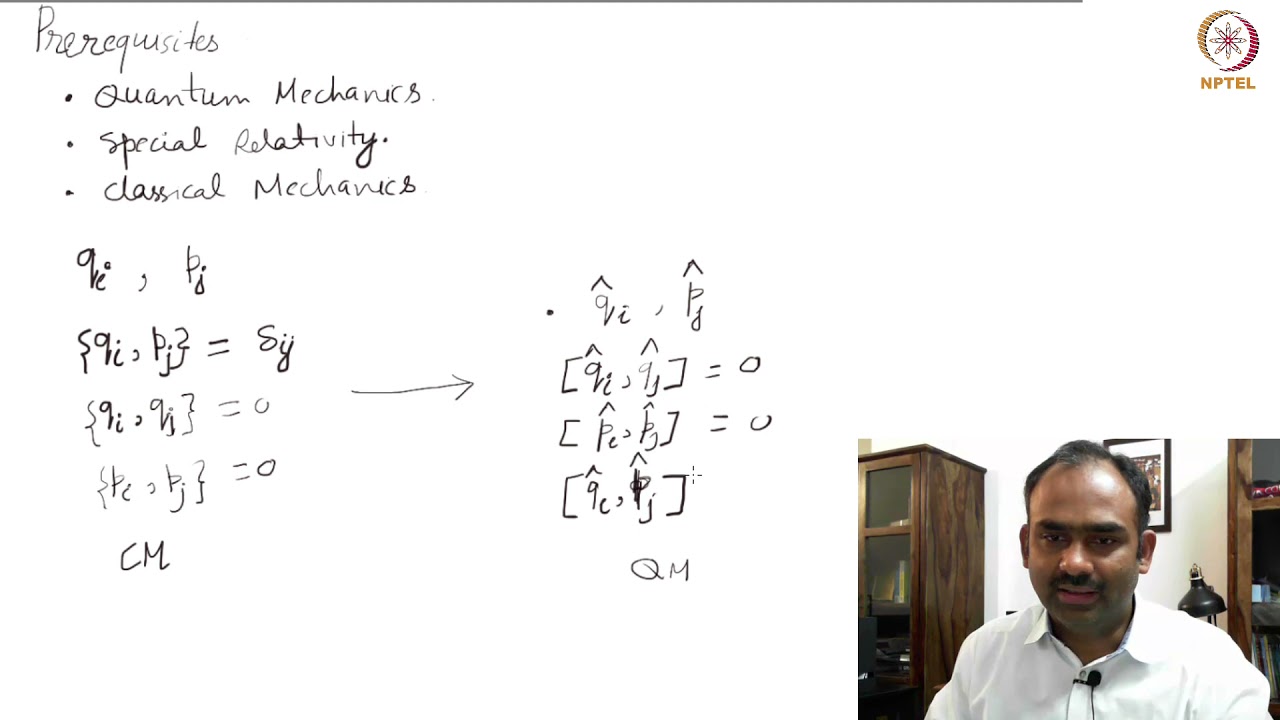 Prerequisites
• Quantum Mechanics.
• Special Relativity.
• Classical Mechanics.
qᵢ , pⱼ
{qᵢ, pⱼ} = δᵢⱼ
{qᵢ, qⱼ} = 0
{pᵢ, pⱼ} = 0
CM
• q̂ᵢ , p̂ⱼ
[q̂ᵢ, q̂ⱼ] = 0
[p̂ᵢ, p̂ⱼ] = 0
[q̂ᵢ, p̂ⱼ]
QM
NPTEL